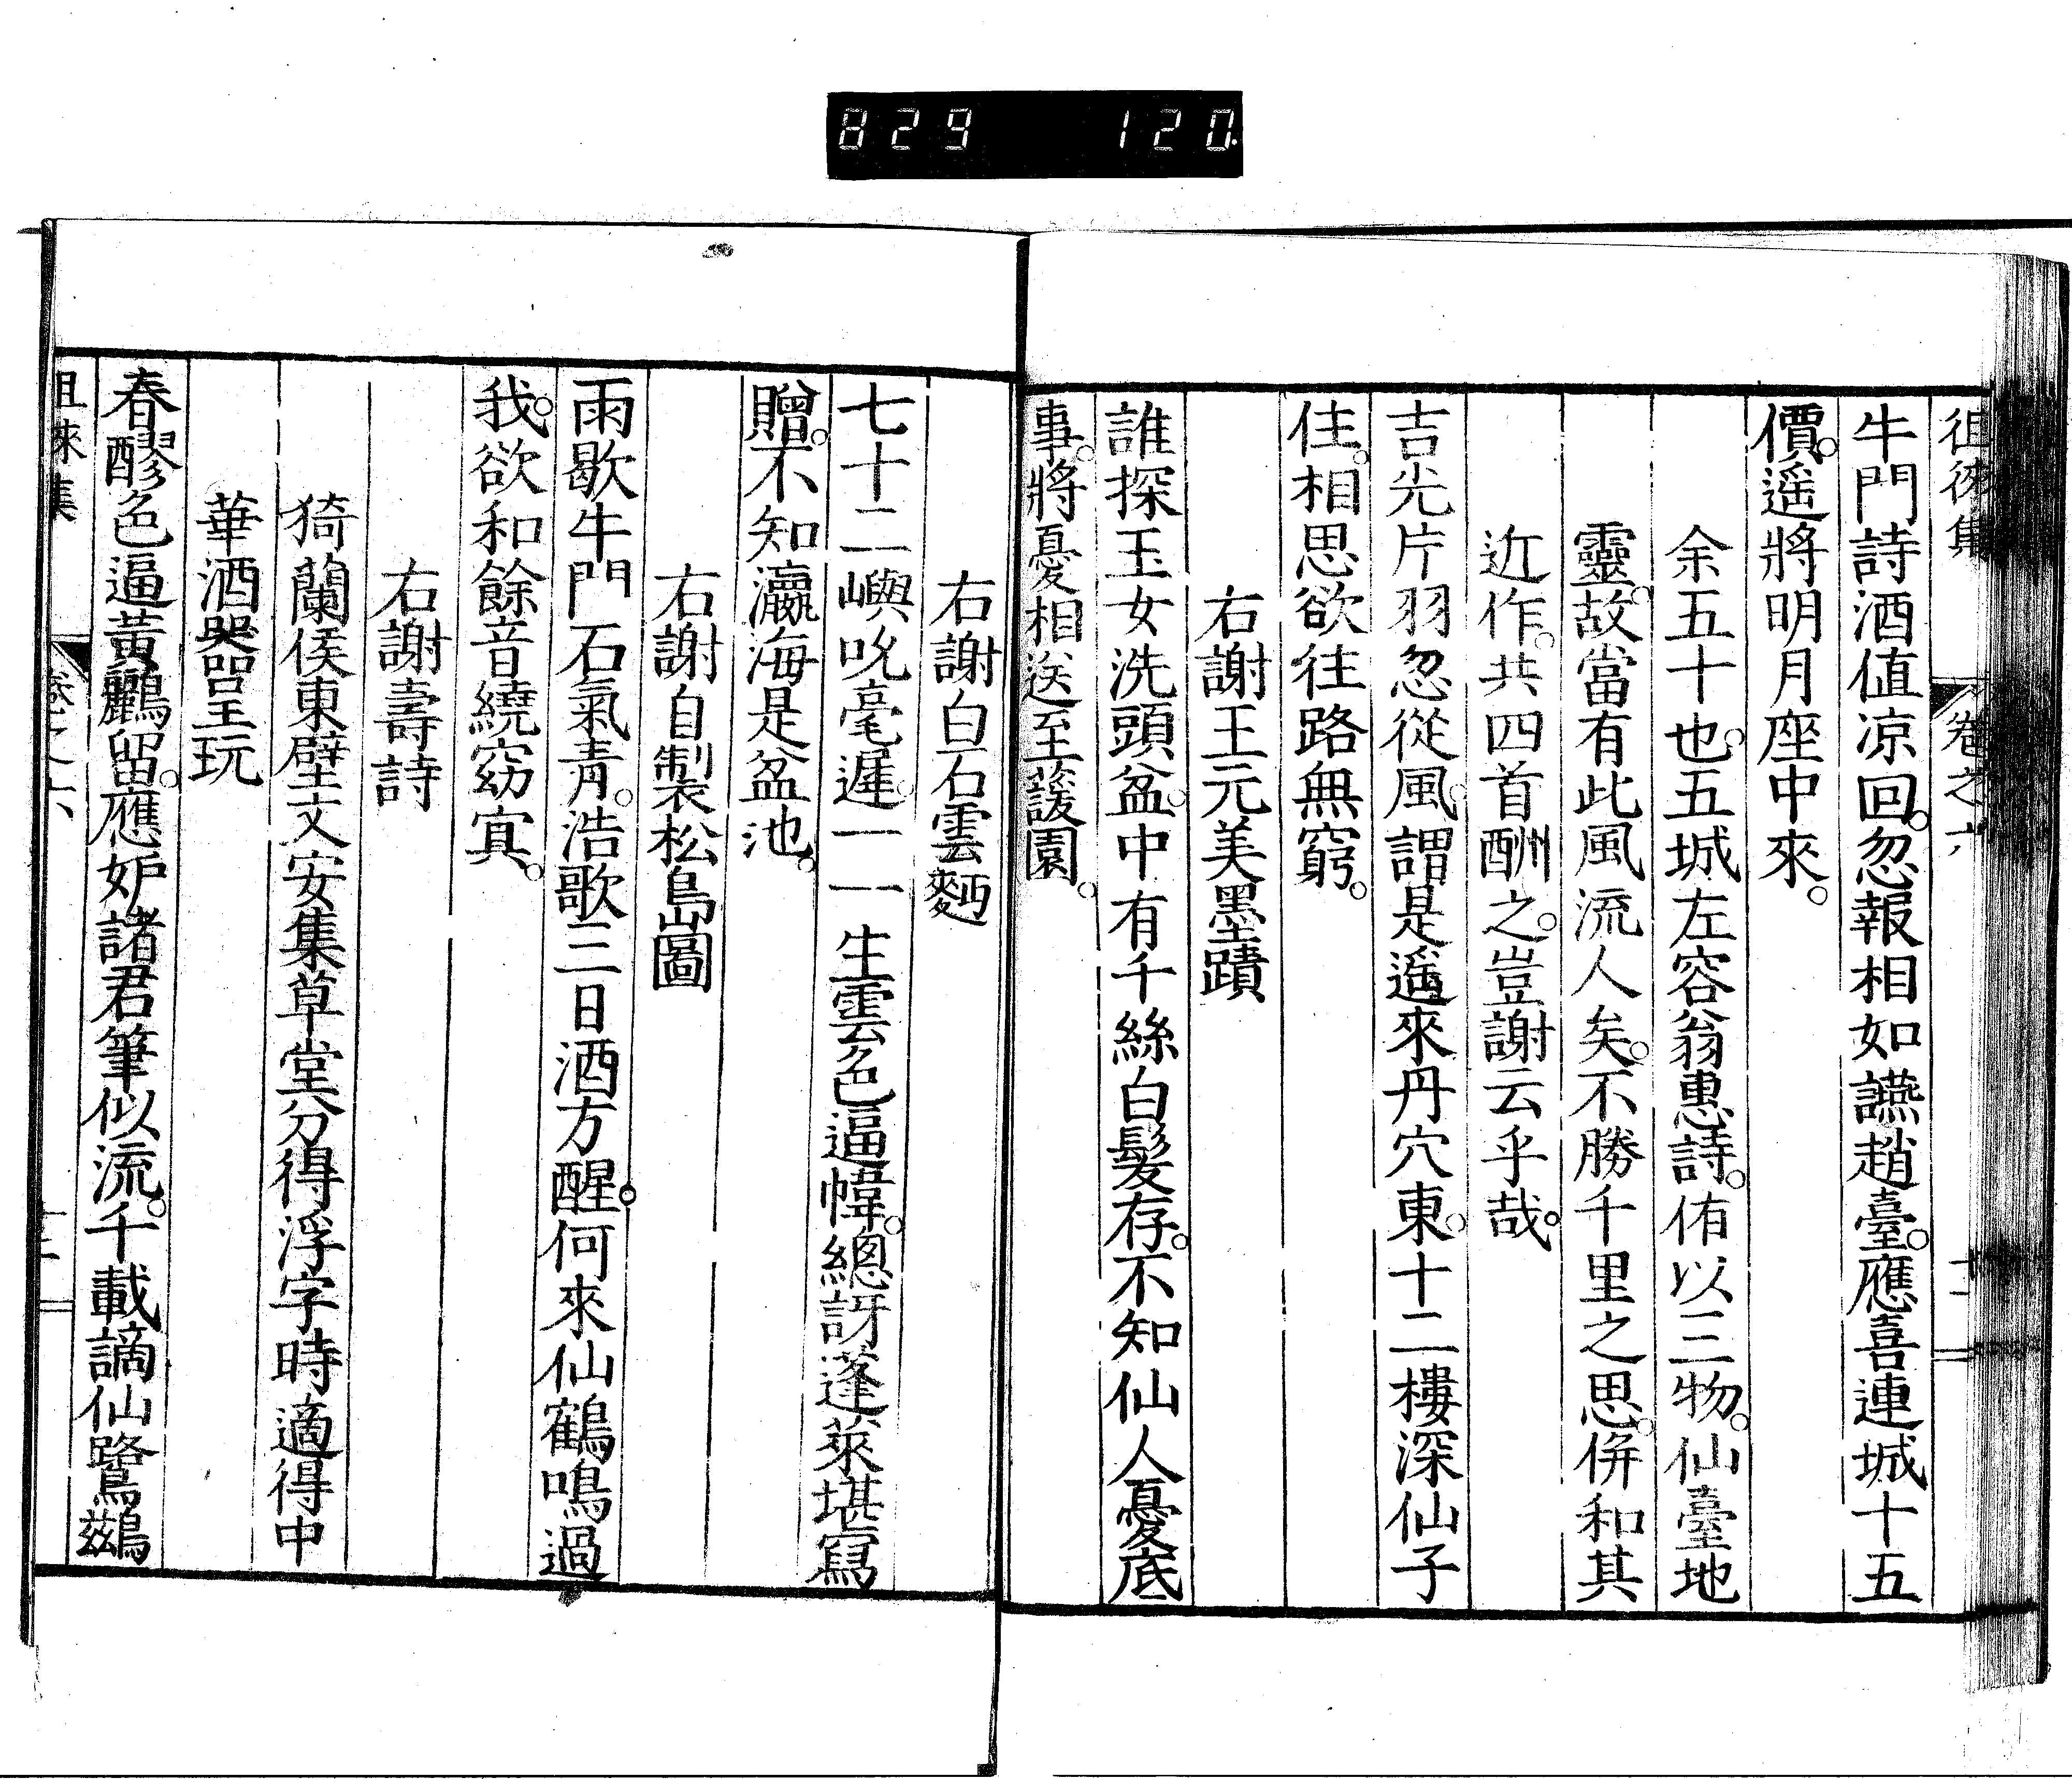 829 120
徂徠集 卷之六 十一
牛門詩酒值凉回。忽報相如讌趙臺。應喜連城十五
價。遥將明月座中來。
余五十也。五城左容翁惠詩。侑以三物。仙臺地
靈。故當有此風流人矣。不勝千里之思。併和其
近作。共四首酬之。豈謝云乎哉。
吉光片羽忽從風。謂是遥來丹穴東。十二樓深仙子
住。相思欲往路無窮。
右謝王元美墨蹟
誰探玉女洗頭盆。盆中有千絲白髮存。不知仙人憂底
事。將憂相送至蘐園。
右謝白石雲麪
七十二嶼吮毫遲。一一生雲色逼幃。總訝蓬萊堪寫
贈。不知瀛海是盆池。
右謝自製松島圖
雨歇牛門石氣青。浩歌三日酒方醒。何來仙鶴鳴過
我。欲和餘音繞窈㝠。
右謝壽詩
猗蘭侯東壁文安集草堂分得浮字時適得中
華酒器呈玩
春醪色逼黃鸝留。應妒諸君筆似流。千載謫仙鷺鷀
徂徠集 卷之六 十二